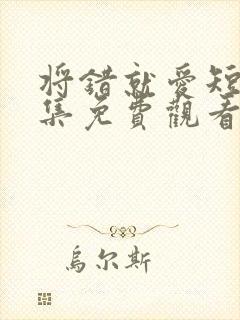 将错就爱短
集免费觀看
烏尔斯